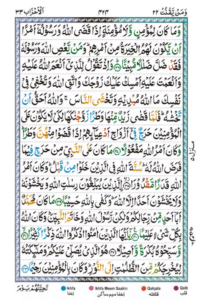 وَمَنْ يَّقْنُتْ ٢٢ ٤٢٣ الْاَحْزَاب ٣٣
وَمَا كَانَ لِمُؤْمِنٍ وَّلَا مُؤْمِنَةٍ اِذَا قَضَى اللّٰهُ وَرَسُوْلُهٗٓ اَمْرًا
اَنْ يَّكُوْنَ لَهُمُ الْخِيَرَةُ مِنْ اَمْرِهِمْ وَمَنْ يَّعْصِ اللّٰهَ وَرَسُوْلَهٗ
فَقَدْ ضَلَّ ضَلٰلًا مُّبِيْنًا وَاِذْ تَقُوْلُ لِلَّذِيْٓ اَنْعَمَ اللّٰهُ عَلَيْهِ
وَاَنْعَمْتَ عَلَيْهِ اَمْسِكْ عَلَيْكَ زَوْجَكَ وَاتَّقِ اللّٰهَ وَتُخْفِيْ فِيْ
نَفْسِكَ مَا اللّٰهُ مُبْدِيْهِ وَتَخْشَى النَّاسَ وَاللّٰهُ اَحَقُّ اَنْ
تَخْشٰىهُ فَلَمَّا قَضٰى زَيْدٌ مِّنْهَا وَطَرًا زَوَّجْنٰكَهَا لِكَيْ لَا يَكُوْنَ عَلَى
الْمُؤْمِنِيْنَ حَرَجٌ فِيْٓ اَزْوَاجِ اَدْعِيَآئِهِمْ اِذَا قَضَوْا مِنْهُنَّ وَطَرًا
وَكَانَ اَمْرُ اللّٰهِ مَفْعُوْلًا مَا كَانَ عَلَى النَّبِيِّ مِنْ حَرَجٍ فِيْمَا
فَرَضَ اللّٰهُ لَهٗ سُنَّةَ اللّٰهِ فِي الَّذِيْنَ خَلَوْا مِنْ قَبْلُ وَكَانَ اَمْرُ
اللّٰهِ قَدَرًا مَّقْدُوْرًا الَّذِيْنَ يُبَلِّغُوْنَ رِسٰلٰتِ اللّٰهِ وَيَخْشَوْنَهٗ
وَلَا يَخْشَوْنَ اَحَدًا اِلَّا اللّٰهَ وَكَفٰى بِاللّٰهِ حَسِيْبًا مَا كَانَ مُحَمَّدٌ
اَبَآ اَحَدٍ مِّنْ رِّجَالِكُمْ وَلٰكِنْ رَّسُوْلَ اللّٰهِ وَخَاتَمَ النَّبِيّٖنَ وَكَانَ اللّٰهُ
بِكُلِّ شَيْءٍ عَلِيْمًا يٰٓاَيُّهَا الَّذِيْنَ اٰمَنُوا اذْكُرُوا اللّٰهَ ذِكْرًا كَثِيْرًا
وَّسَبِّحُوْهُ بُكْرَةً وَّاَصِيْلًا هُوَ الَّذِيْ يُصَلِّيْ عَلَيْكُمْ وَمَلٰٓئِكَتُهٗ
لِيُخْرِجَكُمْ مِّنَ الظُّلُمٰتِ اِلَى النُّوْرِ وَكَانَ بِالْمُؤْمِنِيْنَ رَحِيْمًا
Ikhfa Ikhfa Meem Saakin Qalqala